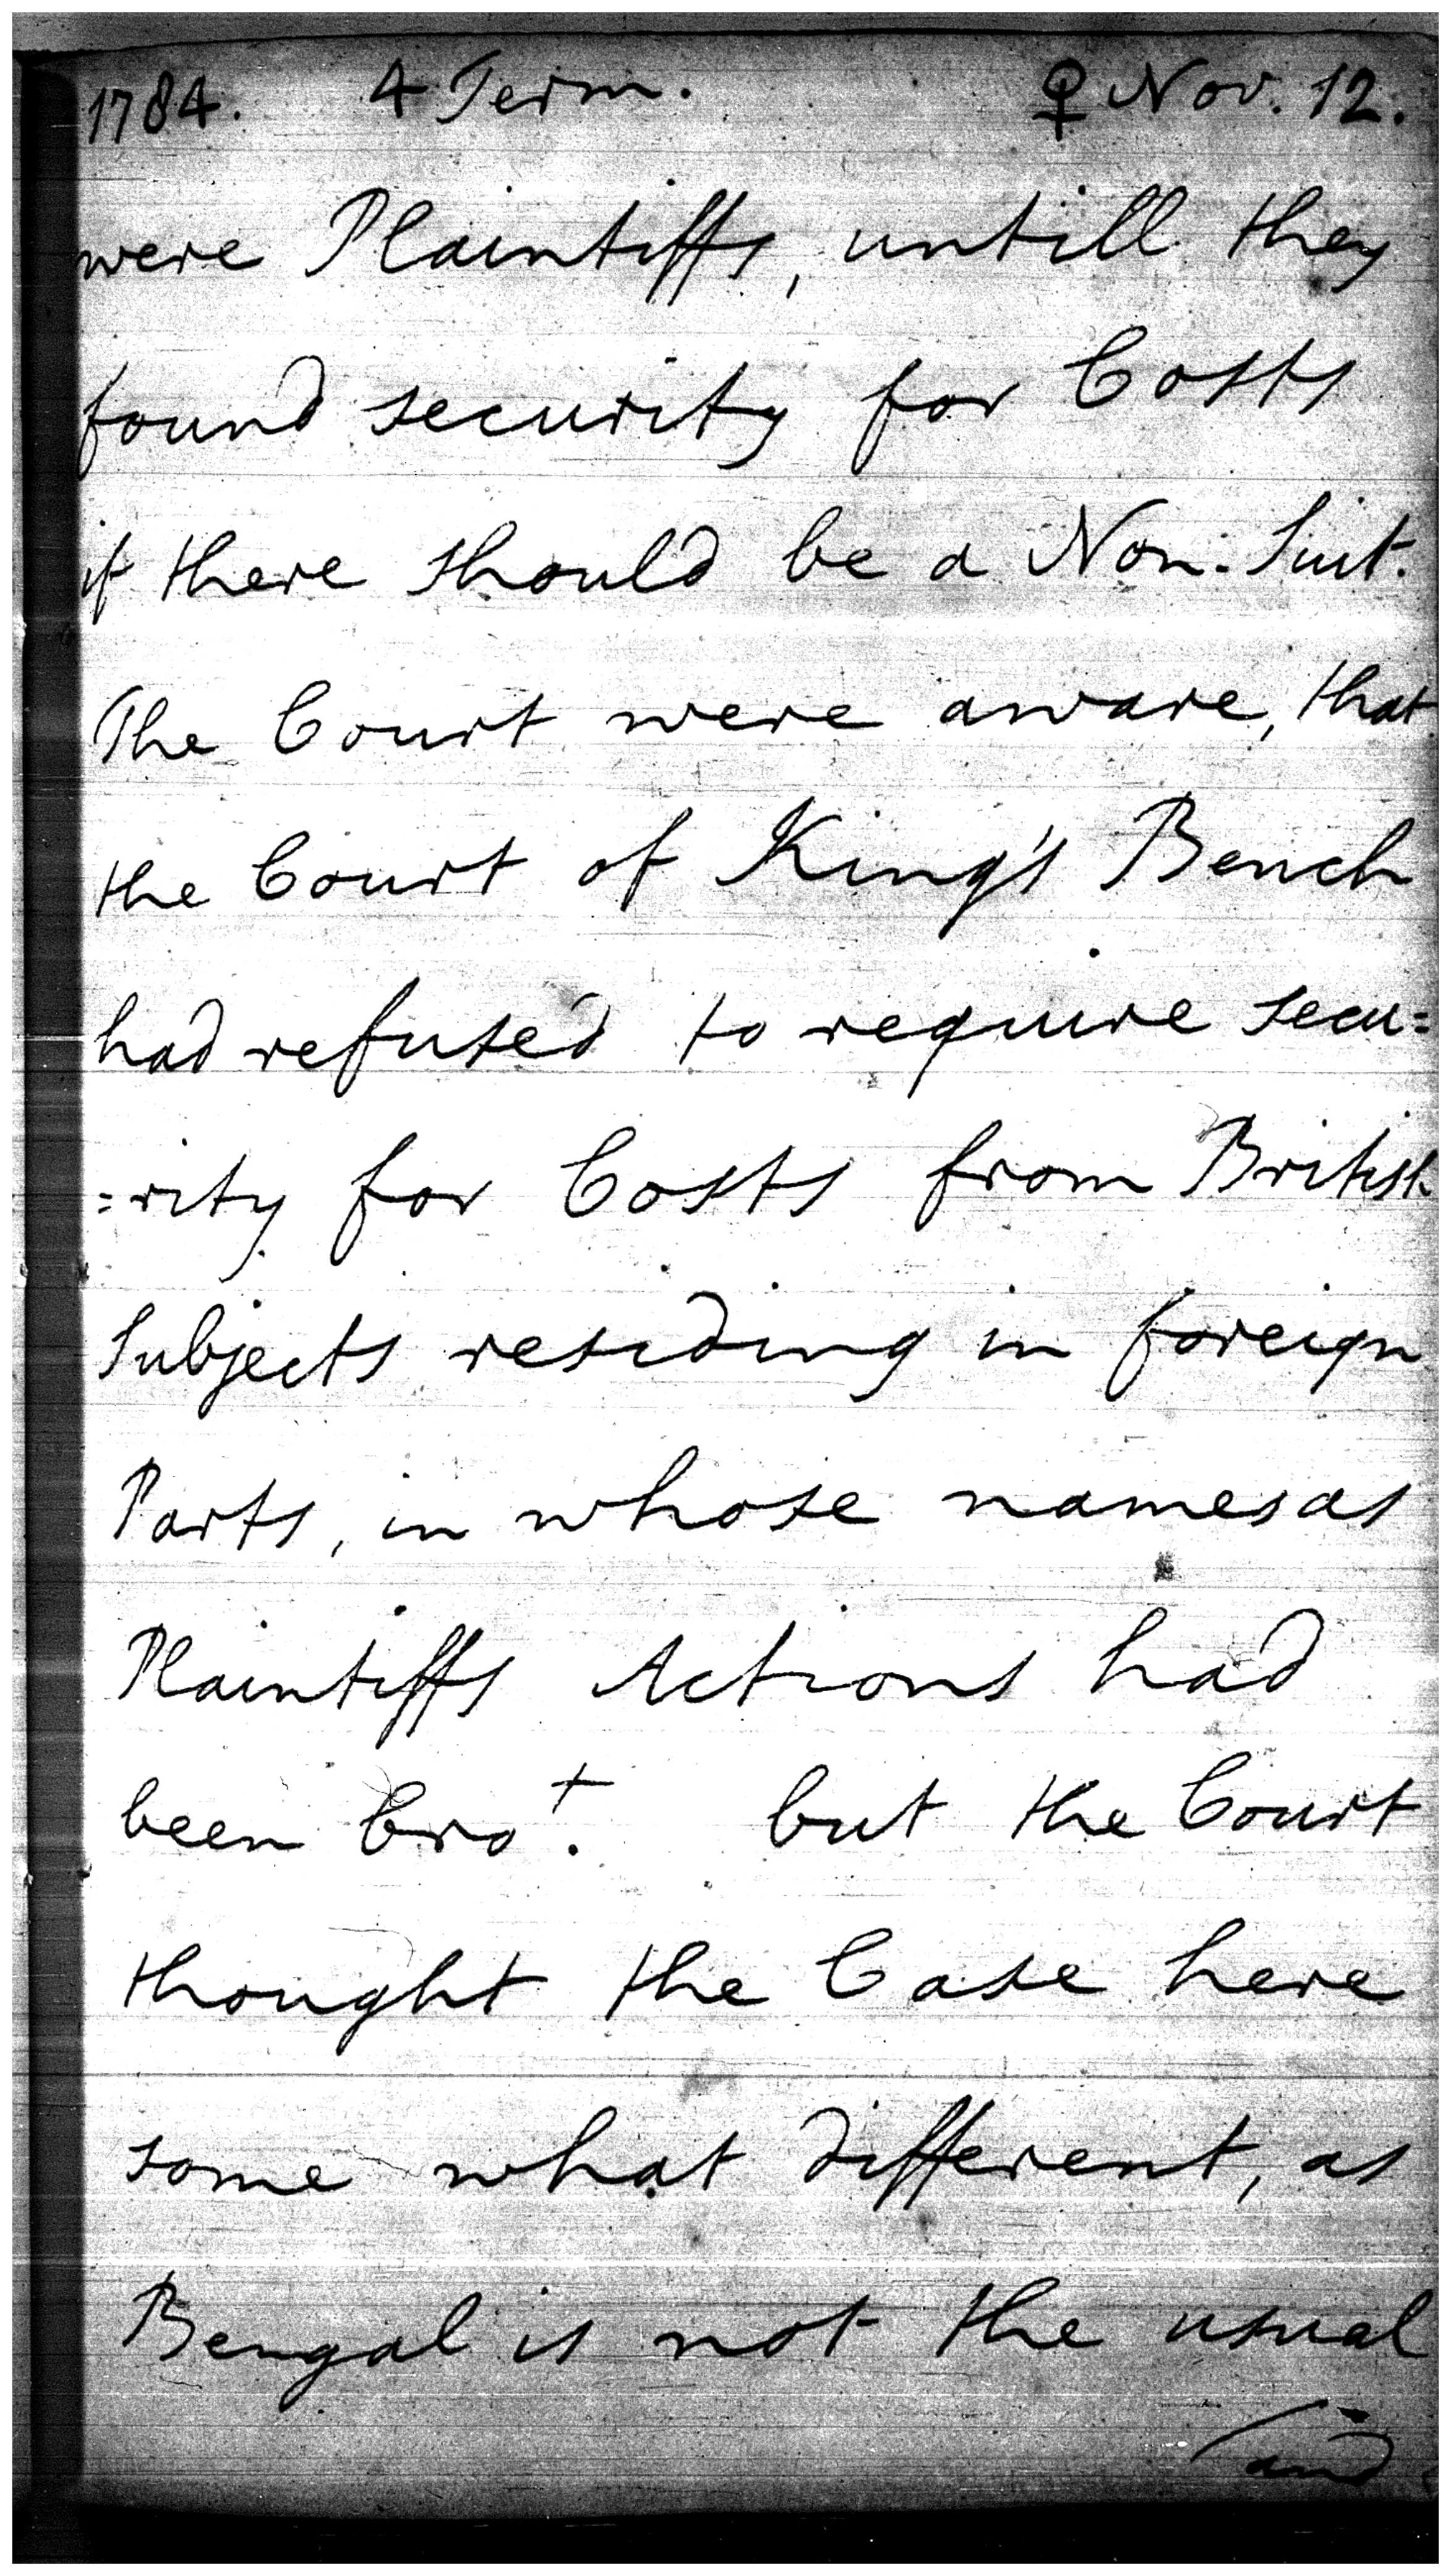 1784. 4 Term. ♀ Nov. 12.
were Plaintiffs, untill they
found security for Costs
if there should be a Non-Suit.
The Court were aware, that
the Court of King's Bench
had refused to require secu=
=rity for Costs from British
Subjects residing in foreign
Parts, in whose names as
Plaintiffs Actions had
been bro.t but the Court
thought the Case here
some what different, as
Bengal is not the usual
and